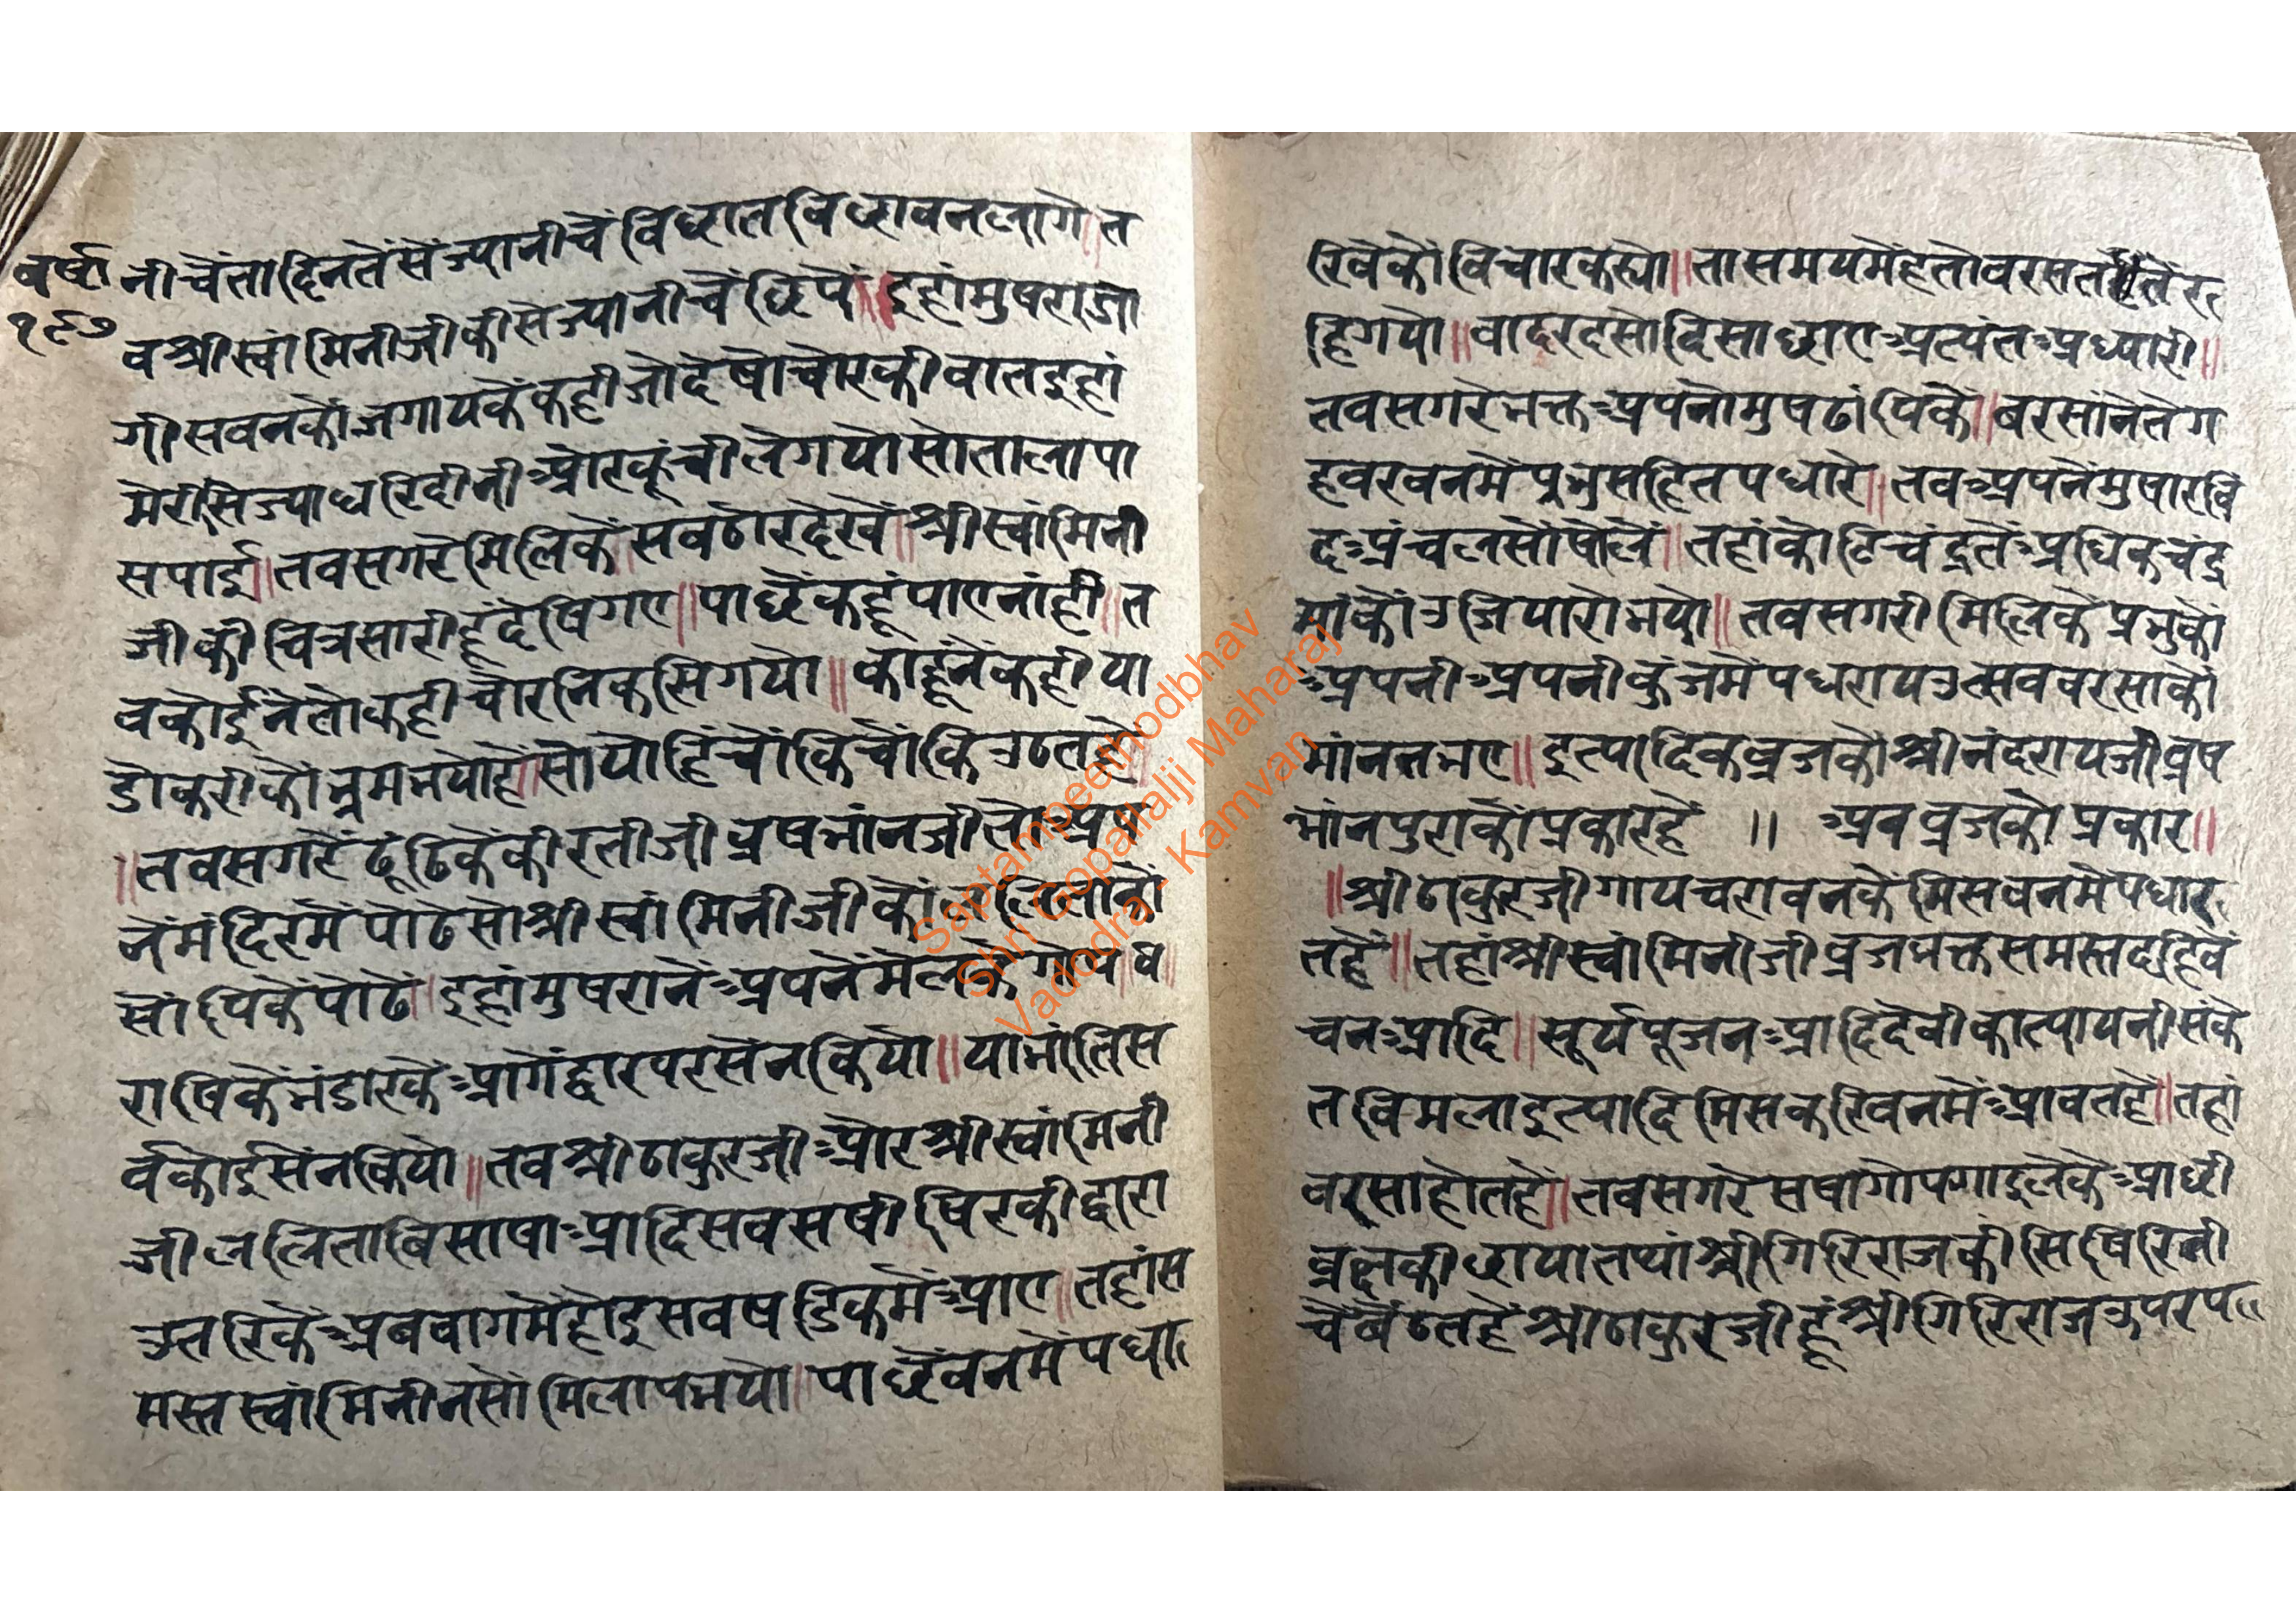 वर्षा
१९७
नीचैंतादिनतेंसेज्यानीचेंविछातविछावनलागे॥त
वश्रीस्वांमिनीजीकीसेज्यानीचैंछिपें॥इहांमुषराजा
गीसवनकोंजगायकेंकहीजोदेषोचोरकीवातइहां
मेरीसिज्याघरिदीनीओरकूंचीलेगयोसोतालापा
सपाई॥तवसगरेमिलिकें॥सवठोरदेखें॥श्रीस्वांमिनी
जीकीचित्रसारीहूंदेषिगए॥पाछेंकहूंपाएनांही॥त
वकोईनेंतोकहीचोरनिकसिगयो॥काहूनेंकहीया
डोकरीकोंभ्रमभयोहे॥सोयोहिंचोंकिचोंकिउठतहे॥
॥तवसगरेंढूंढिकेंकीरतीजीव्रषभांनजीतोअप
नेंमंदिरमेंपोढेसोश्रीस्वांमिनीजीकों
सोंपिकेंपोढे॥इहांमुषरानेंअपनेंमेंलकेंगोप॥ध॥
राषिकेंभंडारकेंआगेंद्वारपरसेंनकियो॥यामांतिस
र्वकोईसेंनकियो॥तवश्रीठाकुरजीओरश्रीस्वांमिनी
जीललिताबिसाषाआदिसवसषीषिरकीद्वारा
उतरिकेंअबबागमेंहोइसवषडिकमेंआए॥तहांस
मस्तस्वांमिनीनसोंमिलापभयो॥पाछेंवनमेंपधा
रिवेकोंविचारकस्यो॥तासमयमेंहतोवरसततेंर
हिगयो॥वादरदसोदिसाछाएअत्यंतअध्यारी॥
तवसगरेभक्तअपनोमुषढांपिकें॥बरसांनेतेग
हवरवनमेंप्रभुसहितपधारे॥तवअपनेंमुषारविं
दअंचलसोंषोलें॥तहांकोटिचंद्रतेंअधिकचंद्र
मांकोंउजियारोभयो॥तवसगरीमिलिकेंप्रभुकों
अपनीअपनीकुंजमेंपधरायउत्सववरसाकों
मांनतभए॥इत्यादिकव्रजकोंश्रीनंदरायजीव्रष
भांनपुराकोंप्रकारहें ॥ अबव्रजकोप्रकार॥
॥श्रीठाकुरजीगायचरावनकेंमिसवनमेंपधार
तहें॥तहांश्रीस्वांमिनीजीव्रजभक्तसमस्तदहिवे
चनआदि॥सूर्यपूजनआदिदेवीकात्यायनीसंके
तविमलाइत्यादिमिसकरिवनमेंआवतहे॥तहां
वरसाहोतहें॥तवसगरेसषागोपगाइलेकेंआछी
व्रछकीछायातप्यांश्रीगिरिराजकीसिषिरिनी
चेंबेंठतहेंश्रीठाकुरजीहूंश्रीगिरिराजउपरप॥
Saptampeethodbhav
Shri Gopallalji Maharaj
Vadodra - Kamvan